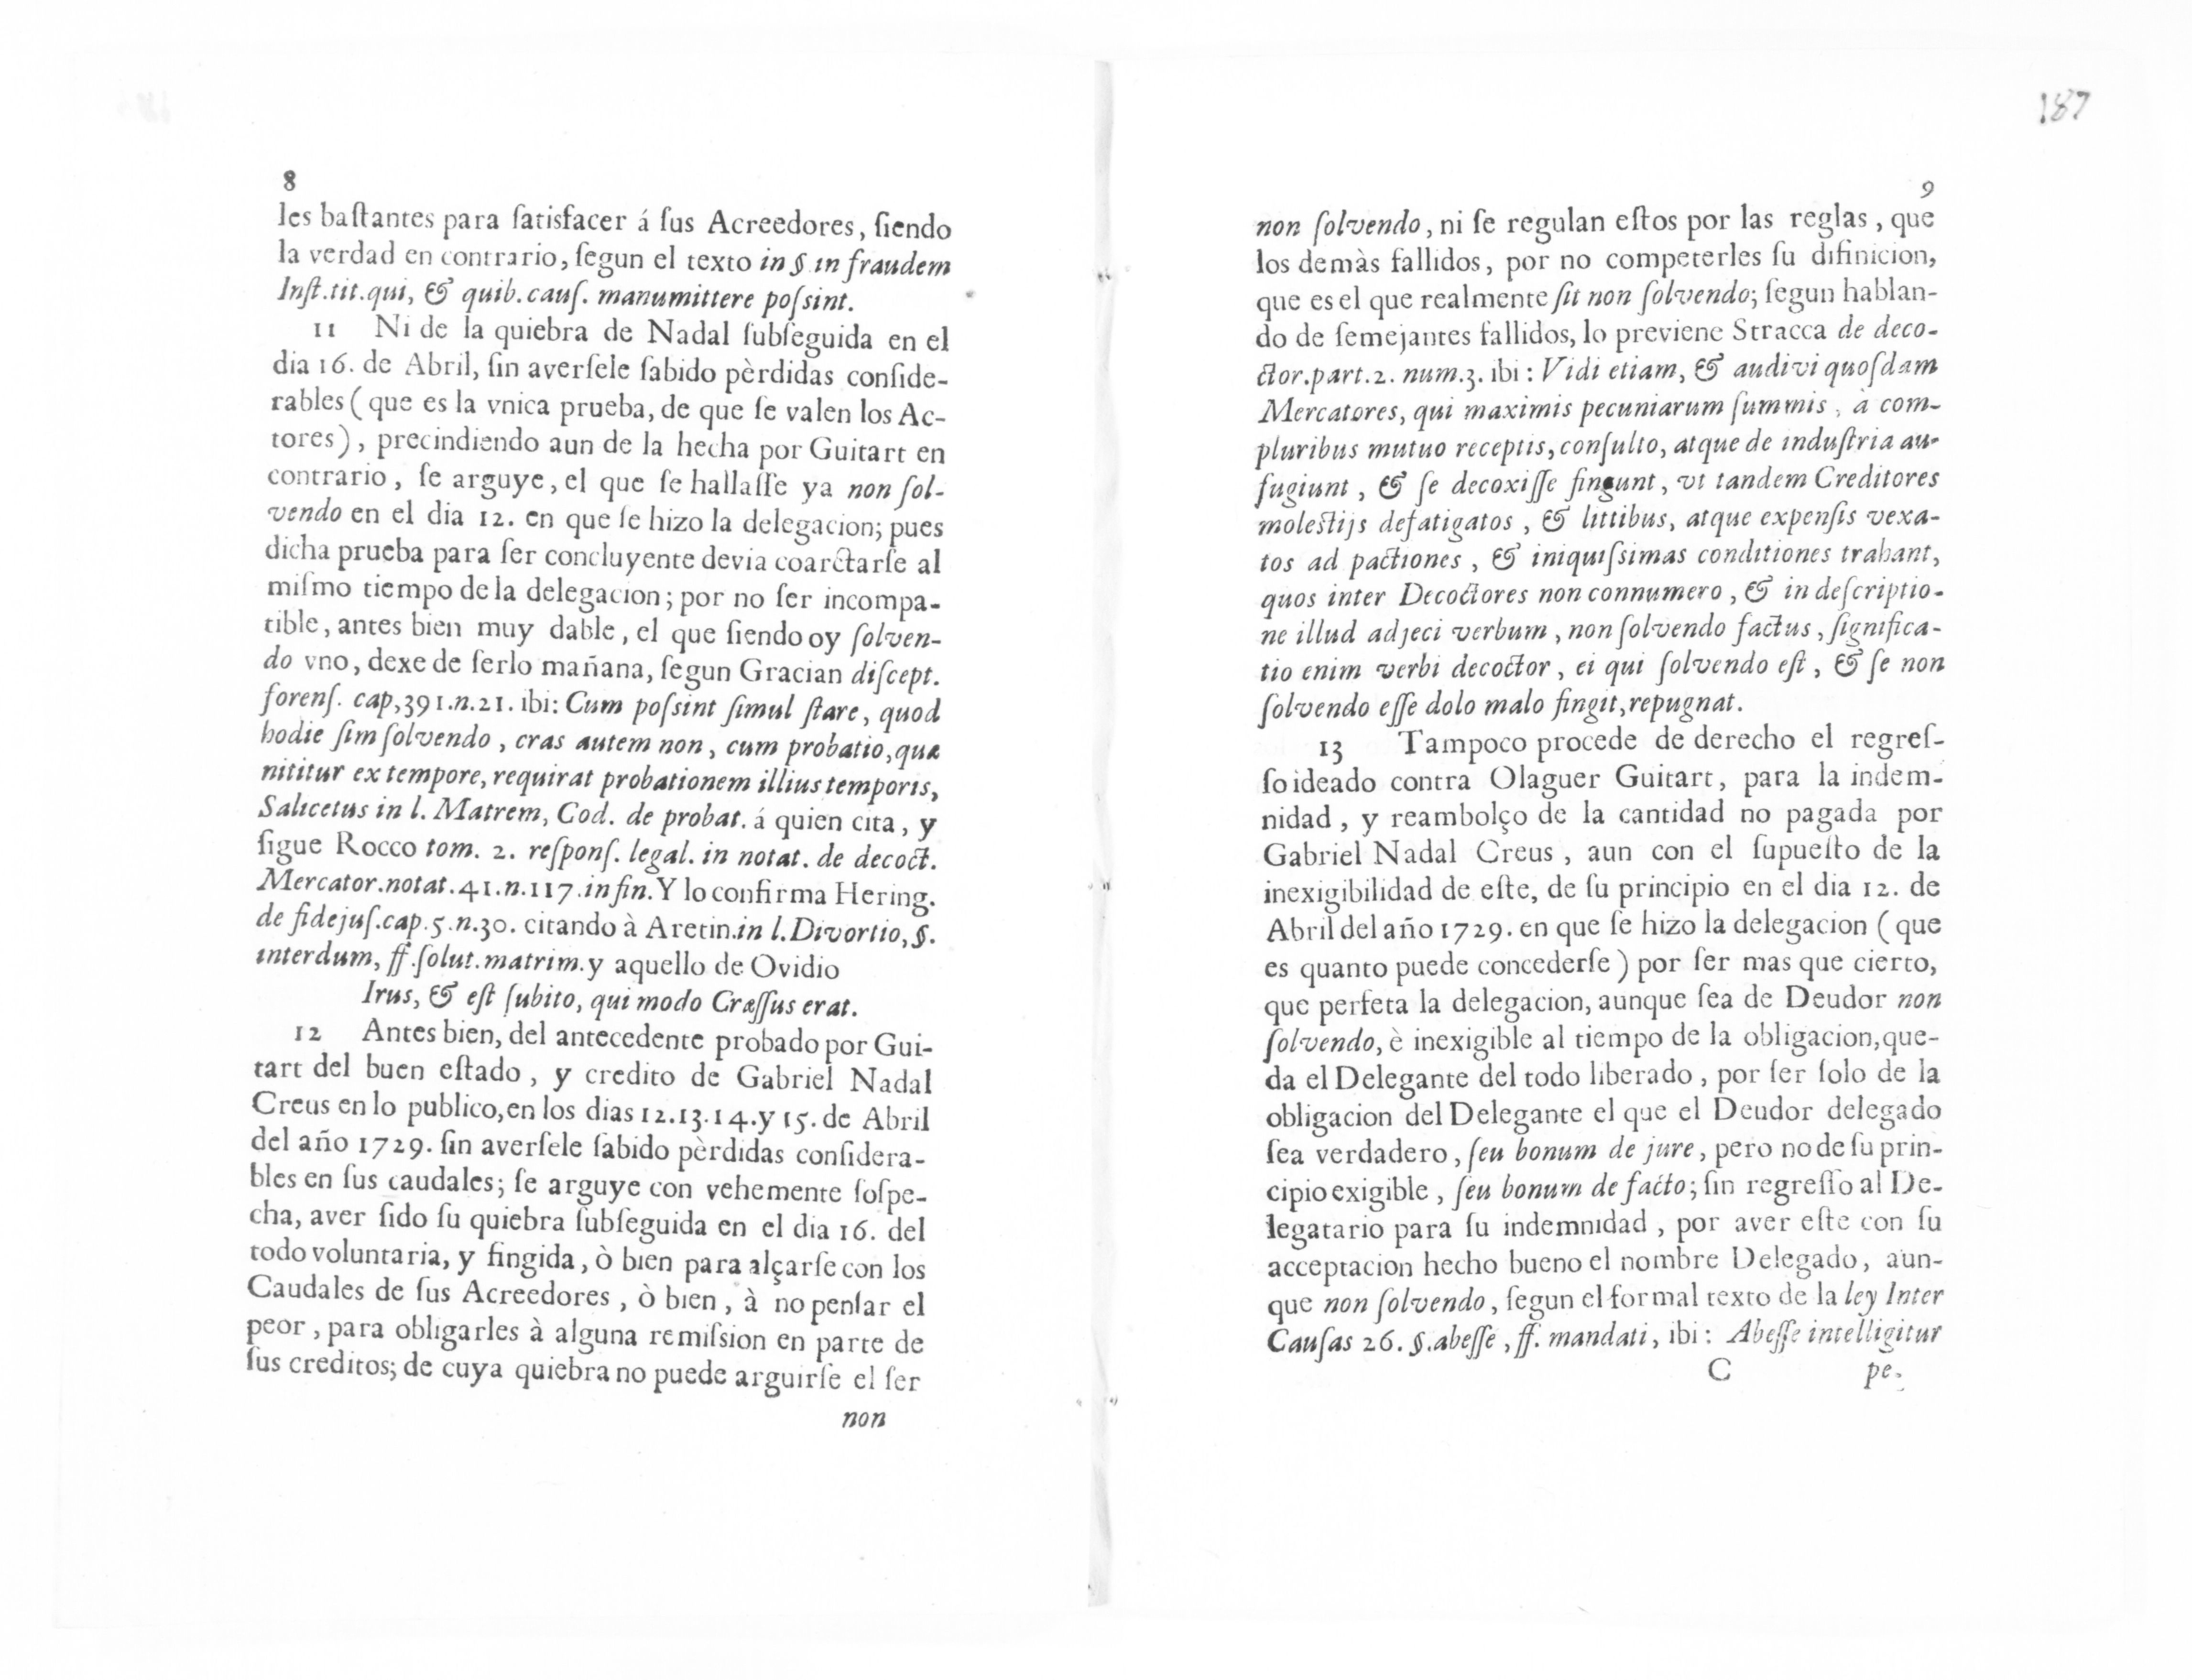 8
les baſtantes para ſatisfacer á ſus Acreedores, ſiendo
la verdad en contrario, ſegun el texto in § in fraudem
Inſt.tit.qui, & quib.cauſ. manumittere poſsint.
11 Ni de la quiebra de Nadal ſubſeguida en el
dia 16. de Abril, ſin averſele ſabido pèrdidas conſide-
rables ( que es la vnica prueba, de que ſe valen los Ac-
tores) , precindiendo aun de la hecha por Guitart en
contrario, ſe arguye, el que ſe hallaſſe ya non ſol-
vendo en el dia 12. en que ſe hizo la delegacion; pues
dicha prueba para ſer concluyente devia coarctarſe al
miſmo tiempo de la delegacion; por no ſer incompa-
tible, antes bien muy dable, el que ſiendo oy ſolven-
do vno, dexe de ſerlo mañana, ſegun Gracian diſcept.
forenſ. cap,391.n.21. ibi: Cum poſsint ſimul ſtare, quod
hodie ſim ſolvendo, cras autem non, cum probatio, quæ
nititur ex tempore, requirat probationem illius temporis,
Salicetus in l. Matrem, Cod. de probat. á quien cita, y
ſigue Rocco tom. 2. reſponſ. legal. in notat. de decoct.
Mercator.notat.41.n.117.in fin. Y lo confirma Hering.
de fidejuſ.cap.5.n.30. citando à Aretin.in l. Divortio, §.
interdum, ff.ſolut.matrim. y aquello de Ovidio
Irus, & eſt ſubito, qui modo Cræſſus erat.
12 Antes bien, del antecedente probado por Gui-
tart del buen eſtado, y credito de Gabriel Nadal
Creus en lo publico, en los dias 12.13.14.y 15. de Abril
del año 1729. ſin averſele ſabido pèrdidas conſidera-
bles en ſus caudales; ſe arguye con vehemente ſoſpe-
cha, aver ſido ſu quiebra ſubſeguida en el dia 16. del
todo voluntaria, y fingida, ò bien para alçarſe con los
Caudales de ſus Acreedores, ò bien, à no penſar el
peor, para obligarles à alguna remiſsion en parte de
ſus creditos; de cuya quiebra no puede arguirſe el ſer
non
187
9
non ſolvendo, ni ſe regulan eſtos por las reglas, que
los demàs fallidos, por no competerles ſu difinicion,
que es el que realmente ſit non ſolvendo; ſegun hablan-
do de ſemejantes fallidos, lo previene Stracca de deco-
ctor.part.2. num.3. ibi: Vidi etiam, & audivi quoſdam
Mercatores, qui maximis pecuniarum ſummis, à com-
pluribus mutuo receptis, conſulto, atque de induſtria au-
fugiunt, & ſe decoxiſſe fingunt, vt tandem Creditores
moleſtijs defatigatos, & littibus, atque expenſis vexa-
tos ad pactiones, & iniquiſsimas conditiones trahant,
quos inter Decoctores non connumero, & in deſcriptio-
ne illud adjeci verbum, non ſolvendo factus, ſignifica-
tio enim verbi decoctor, ei qui ſolvendo eſt, & ſe non
ſolvendo eſſe dolo malo fingit, repugnat.
13 Tampoco procede de derecho el regreſ-
ſo ideado contra Olaguer Guitart, para la indem-
nidad, y reambolço de la cantidad no pagada por
Gabriel Nadal Creus, aun con el ſupueſto de la
inexigibilidad de eſte, de ſu principio en el dia 12. de
Abril del año 1729. en que ſe hizo la delegacion ( que
es quanto puede concederſe ) por ſer mas que cierto,
que perfeta la delegacion, aunque ſea de Deudor non
ſolvendo, è inexigible al tiempo de la obligacion, que-
da el Delegante del todo liberado, por ſer ſolo de la
obligacion del Delegante el que el Deudor delegado
ſea verdadero, ſeu bonum de jure, pero no de ſu prin-
cipio exigible, ſeu bonum de facto; ſin regreſſo al De-
legatario para ſu indemnidad, por aver eſte con ſu
acceptacion hecho bueno el nombre Delegado, aun-
que non ſolvendo, ſegun el formal texto de la ley Inter
Cauſas 26. §.abeſſe, ff. mandati, ibi: Abeſſe intelligitur
C pe-